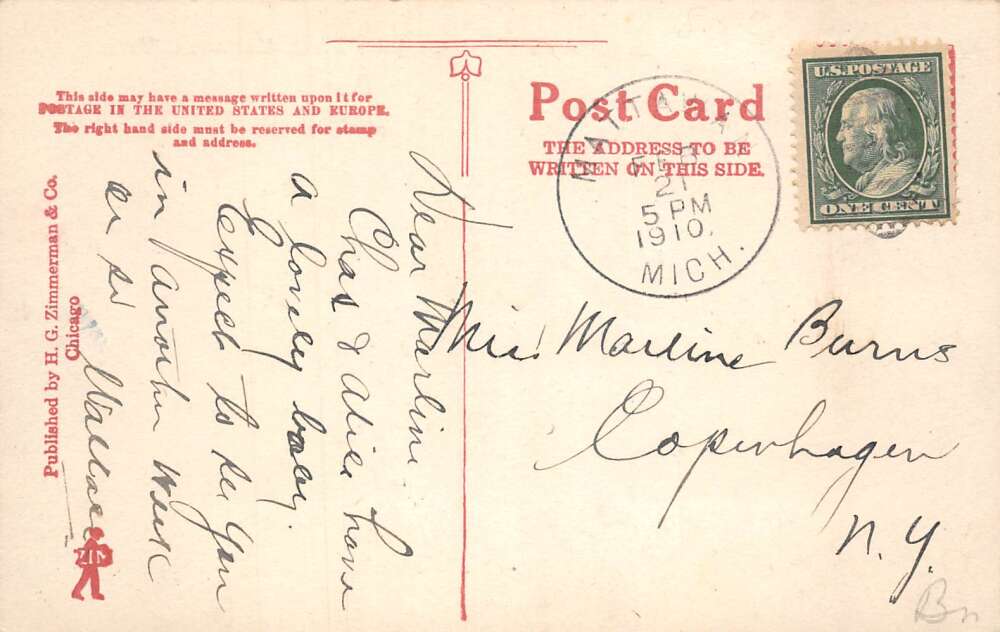 This side may have a message written upon it for
POSTAGE IN THE UNITED STATES AND EUROPE.
The right hand side must be reserved for stamp
and address.
Post Card
THE ADDRESS TO BE
WRITTEN ON THIS SIDE.
U.S. POSTAGE
ONE CENT
MATTAWAN
FEB
21
5 PM
1910.
MICH.
Dear Marline.
Chas & Alice have
a lovely baby.
Expect to be you
in another week
or so
Wallace
Miss Marline Burns
Copenhagen
N.Y.
Published by H. G. Zimmerman & Co.
Chicago
ZIM
Bn